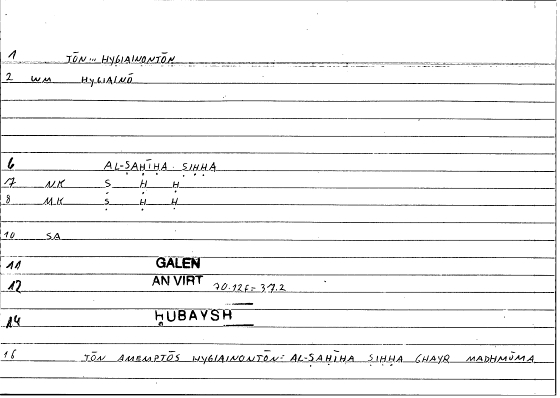 1 TŌN ... HYGIAINONTŌN
2 WM HYGIAINŌ
6 AL-ṢAḤĪḤA ṢIḤḤA
7 NK Ṣ Ḥ Ḥ
8 MK Ṣ Ḥ Ḥ
10 SA
11 GALEN
12 AN VIRT 70.12F = 37.2
14 ḤUBAYSH
16 TŌN AMEMPTŌS HYGIAINONTŌN = AL-ṢAḤĪḤA ṢIḤḤA GHAYR MADHMŪMA